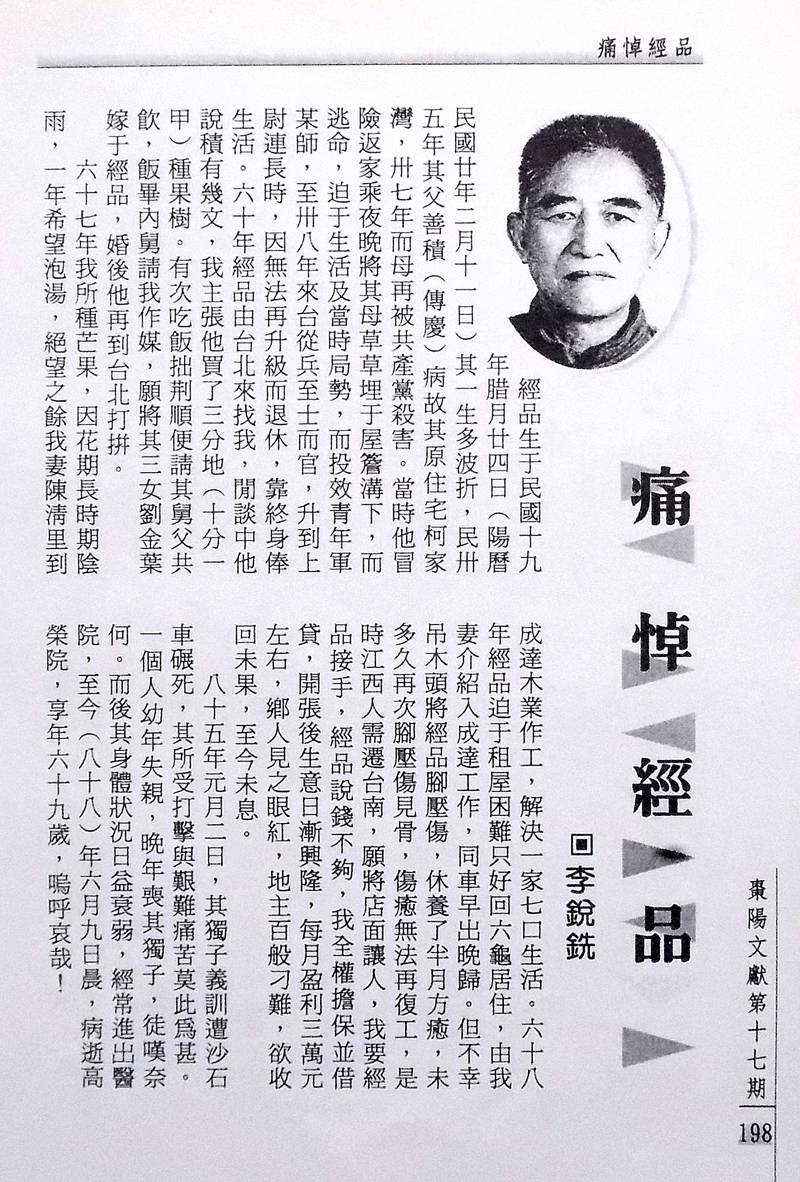 痛悼經品
痛悼經品
▣李銳銑
經品生于民國十九
年腊月廿四日（陽曆
民國廿年二月十一日）其一生多波折，民卅
五年其父善積（傳慶）病故其原住宅柯家
灣，卅七年而母再被共產黨殺害。當時他冒
險返家乘夜晚將其母草草埋于屋簷溝下，而
逃命，迫于生活及當時局勢，而投效青年軍
某師，至卅八年來台從兵至士而官，升到上
尉連長時，因無法再升級而退休，靠終身俸
生活。六十年經品由台北來找我，閒談中他
說積有幾文，我主張他買了三分地（十分一
甲）種果樹。有次吃飯拙荆順便請其舅父共
飲，飯畢內舅請我作媒，願將其三女劉金葉
嫁于經品，婚後他再到台北打拚。
六十七年我所種芒果，因花期長時期陰
雨，一年希望泡湯，絕望之餘我妻陳清里到
成達木業作工，解決一家七口生活。六十八
年經品迫于租屋困難只好回六龜居住，由我
妻介紹入成達工作，同車早出晚歸。但不幸
吊木頭將經品腳壓傷，休養了半月方癒，未
多久再次腳壓傷見骨，傷癒無法再復工，是
時江西人需遷台南，願將店面讓人，我要經
品接手，經品說錢不夠，我全權擔保並借
貸，開張後生意日漸興隆，每月盈利三萬元
左右，鄉人見之眼紅，地主百般刁難，欲收
回未果，至今未息。
八十五年元月二日，其獨子義訓遭沙石
車碾死，其所受打擊與艱難痛苦莫此爲甚。
一個人幼年失親，晚年喪其獨子，徒嘆奈
何。而後其身體狀況日益衰弱，經常進出醫
院，至今（八十八）年六月九日晨，病逝高
榮院，享年六十九歲，嗚呼哀哉！
棗陽文獻第十七期
198